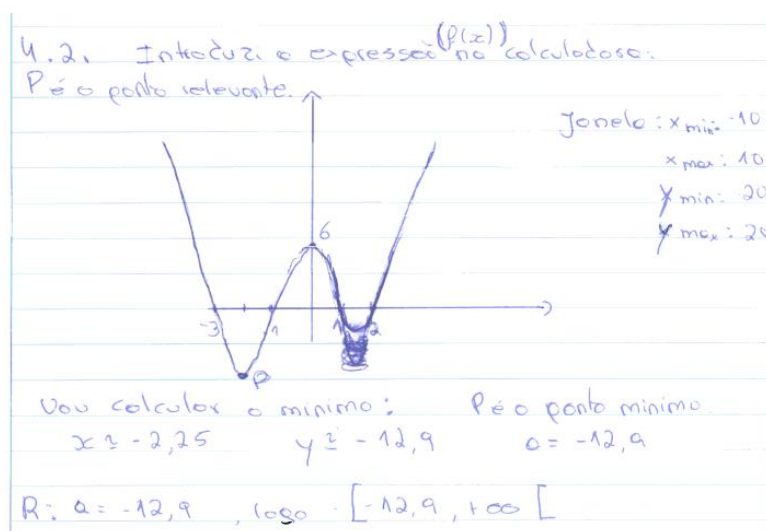 4.2. Introduzi a expressão (P(x)) na calculadora.
P é o ponto relevante.
Janela: x min: -10
x max: 10
y min: -20
y max: 20
6
-3 -1 1 2
P
Vou calcular o mínimo: P é o ponto mínimo
x ≃ -2,25 y ≃ -12,9 a = -12,9
R: a = -12,9 , logo [-12,9 , +∞ [